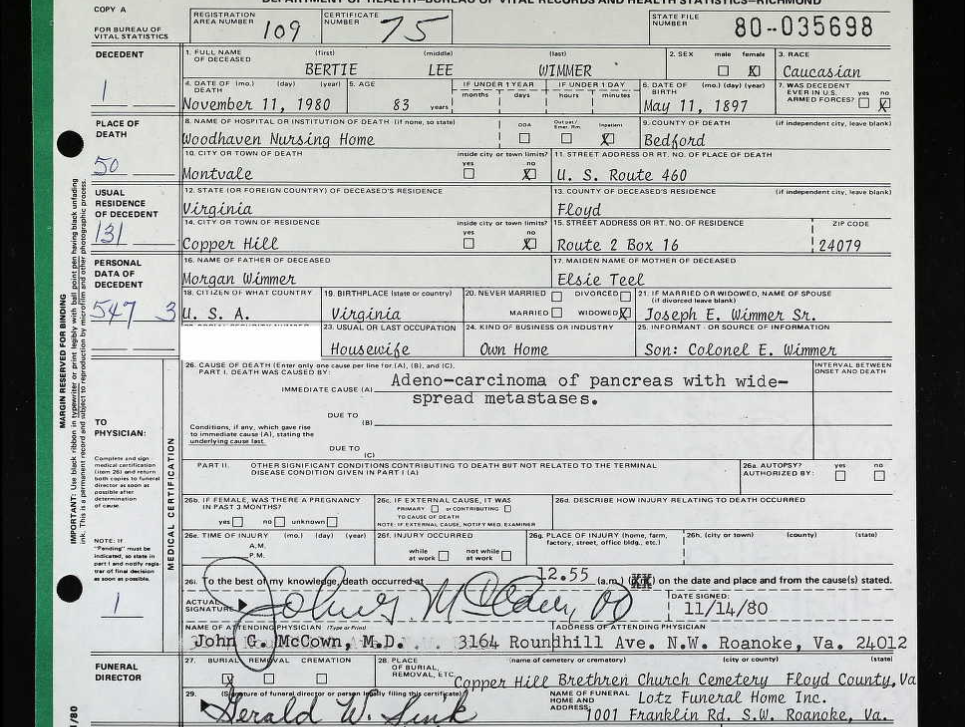 DEPARTMENT OF HEALTH—BUREAU OF VITAL RECORDS AND HEALTH STATISTICS—RICHMOND
COPY A
FOR BUREAU OF VITAL STATISTICS
REGISTRATION AREA NUMBER 109 CERTIFICATE NUMBER 75 STATE FILE NUMBER 80-035698
DECEDENT
1
1. FULL NAME OF DECEASED (first) (middle) (last) 2. SEX male female 3. RACE
BERTIE LEE WIMMER X Caucasian
4. DATE OF DEATH (mo.) (day) (year) 5. AGE IF UNDER 1 YEAR IF UNDER 1 DAY 6. DATE OF BIRTH (mo.) (day) (year) 7. WAS DECEDENT EVER IN U.S. ARMED FORCES? yes no
November 11, 1980 83 years months days hours minutes May 11, 1897 X
PLACE OF DEATH
50
8. NAME OF HOSPITAL OR INSTITUTION OF DEATH (if none, so state) DOA Out pat/ Emer. Rm. Inpatient 9. COUNTY OF DEATH (if independent city, leave blank)
Woodhaven Nursing Home X Bedford
10. CITY OR TOWN OF DEATH inside city or town limits? yes no 11. STREET ADDRESS OR RT. NO. OF PLACE OF DEATH
Montvale X U. S. Route 460
USUAL RESIDENCE OF DECEDENT
131
12. STATE (OR FOREIGN COUNTRY) OF DECEASED'S RESIDENCE 13. COUNTY OF DECEASED'S RESIDENCE (if independent city, leave blank)
Virginia Floyd
14. CITY OR TOWN OF RESIDENCE inside city or town limits? yes no 15. STREET ADDRESS OR RT. NO. OF RESIDENCE ZIP CODE
Copper Hill X Route 2 Box 16 24079
PERSONAL DATA OF DECEDENT
547 3
16. NAME OF FATHER OF DECEASED 17. MAIDEN NAME OF MOTHER OF DECEASED
Morgan Wimmer Elsie Teel
18. CITIZEN OF WHAT COUNTRY 19. BIRTHPLACE (state or country) 20. NEVER MARRIED DIVORCED 21. IF MARRIED OR WIDOWED, NAME OF SPOUSE (if divorced leave blank)
U. S. A. Virginia MARRIED WIDOWED X Joseph E. Wimmer Sr.
23. USUAL OR LAST OCCUPATION 24. KIND OF BUSINESS OR INDUSTRY 25. INFORMANT - OR SOURCE OF INFORMATION
Housewife Own Home Son: Colonel E. Wimmer
MARGIN RESERVED FOR BINDING
IMPORTANT: Use black ribbon in typewriter or print legibly with ball point pen having black unfading ink. This is a permanent record and subject to reproduction by microfilm and other photographic process.
TO PHYSICIAN:
Complete and sign medical certification (item 26) and return both copies to funeral director as soon as possible after determination of cause.
NOTE: If "Pending" must be indicated, so state in part I and notify registrar of final decision as soon as possible.
1
MEDICAL CERTIFICATION
26. CAUSE OF DEATH (Enter only one cause per line for (A), (B), and (C). INTERVAL BETWEEN ONSET AND DEATH
PART I. DEATH WAS CAUSED BY:
IMMEDIATE CAUSE (A) Adeno-carcinoma of pancreas with wide-
spread metastases.
DUE TO
(B)
Conditions, if any, which gave rise to immediate cause (A), stating the underlying cause last.
DUE TO
(C)
PART II. OTHER SIGNIFICANT CONDITIONS CONTRIBUTING TO DEATH BUT NOT RELATED TO THE TERMINAL DISEASE CONDITION GIVEN IN PART I (A) 26a. AUTOPSY? AUTHORIZED BY: yes no
26b. IF FEMALE, WAS THERE A PREGNANCY IN PAST 3 MONTHS? yes no unknown
26c. IF EXTERNAL CAUSE, IT WAS PRIMARY or CONTRIBUTING TO CAUSE OF DEATH
NOTE: IF EXTERNAL CAUSE, NOTIFY MED. EXAMINER
26d. DESCRIBE HOW INJURY RELATING TO DEATH OCCURRED
26e. TIME OF INJURY (mo.) (day) (year) A.M. P.M.
26f. INJURY OCCURRED while at work not while at work
26g. PLACE OF INJURY (home, farm, factory, street, office bldg., etc.)
26h. (city or town) (county) (state)
26i. To the best of my knowledge, death occurred at 12.55 (a.m.) on the date and place and from the cause(s) stated.
ACTUAL SIGNATURE John G. McCown, MD DATE SIGNED: 11/14/80
NAME OF ATTENDING PHYSICIAN (Type or Print) ADDRESS OF ATTENDING PHYSICIAN
John G. McCown, M.D. . . 3164 Roundhill Ave. N.W. Roanoke, Va. 24012
FUNERAL DIRECTOR
27. BURIAL REMOVAL CREMATION 28. PLACE OF BURIAL, REMOVAL, ETC. (name of cemetery or crematory) (city or county) (state)
X Copper Hill Brethren Church Cemetery Floyd County, Va
29. (Signature of funeral director or person legally filing this certificate) NAME OF FUNERAL HOME AND ADDRESS
Gerald W. Sink Lotz Funeral Home Inc.
1001 Franklin Rd. S.W. Roanoke, Va.
1/80